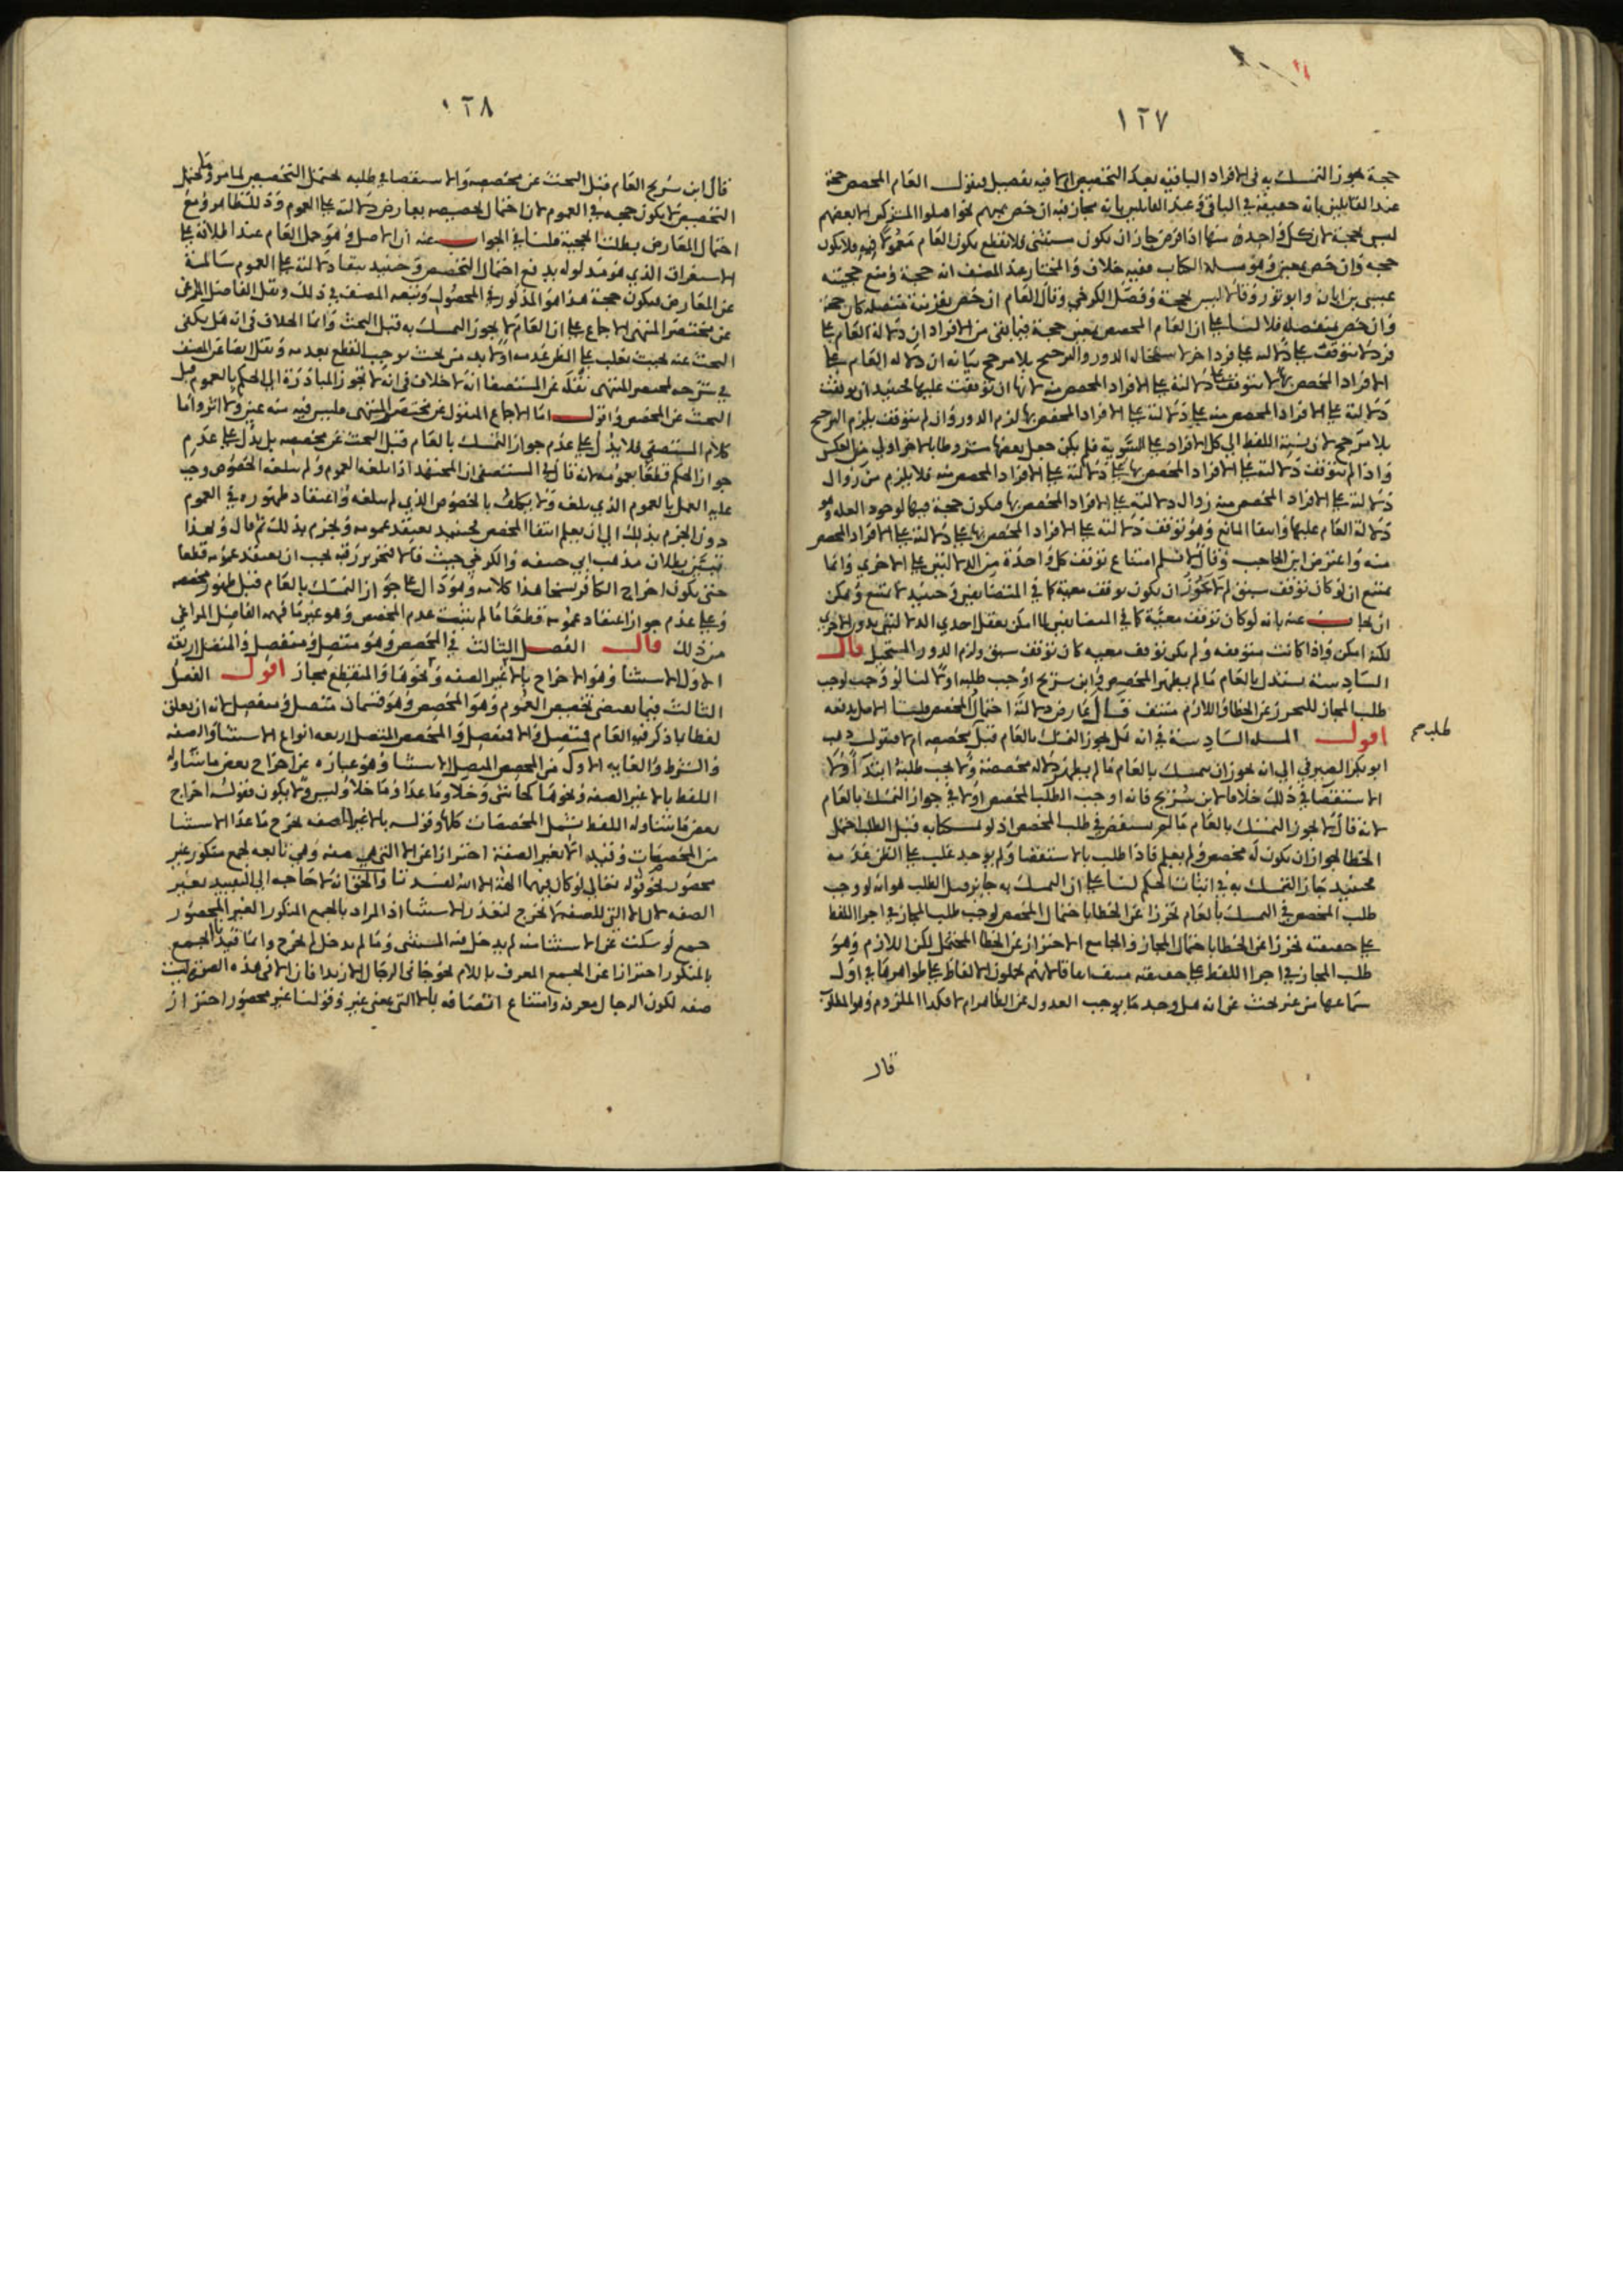 ١٢٧
حجة يجوز التمسك به في الافراد الباقية بعد التخصيص ام لا فيه تفصيل فنقول العام المخصص حجة
عند القايلين بانه حقيقة في الباقي وعند القايلين بانه مجاز فيه ان خص بمبهم نحو اقتلوا المشركين الا بعضهم
ليس بحجة لان كل واحد منها اذا فرض جاز ان يكون مستثنى فلا نقطع بكون العام معمولا فيه فلا يكون
حجة وان خص بمعين وهو مسلة الكتاب ففيه خلاف والمختار عند المصنف انه حجة ومنع حجيته
عيسى بن ابان وابو ثور وقالا ليس بحجة وفصل الكرخي وقال العام ان خص بقرينة متصلة كان حجة
وان خص بمنفصله فلا لنا على ان العام المخصص بمعين حجة فيما بقى من الافراد ان دلالة العام على
فرد لا تتوقف على دلالته على فرد اخر لاستحالة الدور والترجيح بلا مرجح بيانه ان دلالة العام على
الافراد المخصص بها لا تتوقف على دلالته على الافراد المخصص منه لانها ان توقفت عليها فحينئذ ان توقفت
دلالته على الافراد المخصص منه على دلالته على الافراد المخصص بها لزم الدور وان لم تتوقف يلزم الترجيح
بلا مرجح لان نسبة اللفظ الى كل الافراد على التسوية فلم يكن جعل بعضها مشروطا بالاخر اولى من العكس
واذا لم تتوقف دلالته على الافراد المخصص بها على دلالته على الافراد المخصص منه فلا يلزم من زوال
دلالته على الافراد المخصص منه زوال دلالته على الافراد المخصص بها فيكون حجة فيها لوجود العلة وهو
دلالة العام عليها وانتفا المانع وهو توقف دلالته على الافراد المخصص بها على دلالته على الافراد المخصص
منه واعترض ابن الحاجب وقال لا نسلم امتناع توقف كل واحدة من الدلالتين على الاخرى وانما
يمتنع ان لو كان توقف سبق لم لا يجوز ان يكون توقف معية كما في المتضايفين وحينئذ لا يمتنع ويمكن
ان يجاب عنه بانه لو كان توقف معية كما في المتضايفين لما امكن تعقل احدى الدلالتين بدون الاخرى
لكنه امكن واذا كانت متوقفه ولم يكن توقف معيه كان توقف سبق ولزم الدور المستحيل قال
السادسة يستدل بالعام ما لم يظهر المخصص وابن سريج اوجب طلبه اولا لنا لو وجب لوجب
طلب المجاز للتحرز عن الخطا واللازم منتف قال عارض دلالته احتمال المخصص قلنا الاصل يدفعه
طلب صح
اقول المسله السادسة في انه هل يجوز التمسك بالعام قبل مخصصه ام لا فنقول ذهب
ابو بكر الصيرفي الى انه يجوز ان يتمسك بالعام ما لم يظهر دلالة مخصصة ولا يجب طلبه ابتدآ ولا
الاستقصا في ذلك خلافا لابن سريج فانه اوجب الطلب المخصص اولا في جواز التمسك بالعام
لانه قال لا يجوز التمسك بالعام ما لم يستقص في طلب المخصص اذ لو تمسكنا به قبل الطلب احتمل
الخطا لجواز ان يكون له مخصص ولم يعلم فاذا طلب بالاستقصا ولم يوجد غلب على الظن عدمه
فحينئذ جاز التمسك به في اثبات الحكم لنا على ان التمسك به جايز قبل الطلب هو انه لو وجب
طلب المخصص في التمسك بالعام تحرزا عن الخطا باحتمال المخصص لوجب طلب المجاز في اجرا اللفظ
على حقيقته تحرزا عن الخطا باحتمال المجاز والجامع الاحتراز عن الخطا المحتمل لكن اللازم وهو
طلب المجاز في اجرا اللفظ على حقيقته منتف اتفاقا لانهم يحملون الالفاظ على ظواهرها في اول
سماعها من غير بحث عن انه هل وجد ما يوجب العدول عن الظاهر ام لا فكذا الملزوم وهو المطلوب
قال
١٢٨
قال ابن سريج العام قبل البحث عن مخصصه والاستقصا في طلبه يحتمل التخصيص لما مر وما يحتمل
التخصيص لا يكون حجه في العموم لان احتمال تخصيصه يعارض دلالته على العموم وذلك ظاهر ومع
احتمال المعارض بطلت الحجية قلنا في الجواب عنه ان الاصل وهو حمل العام عند اطلاقه على
الاستغراق الذي هو مدلوله يدفع احتمال التخصيص وحينئذ يبقا دلالته على العموم سالمة
عن المعارض فيكون حجة هذا هو المذكور في المحصول وتبعه المصنف في ذلك ونقل الفاضل المراغي
عن مختصر المنتهى الاجماع على ان العام لا يجوز التمسك به قبل البحث وانما الخلاف في انه هل يكفي
البحث عنه بحيث يغلب على الظن عدمه او لا بد من بحث يوجب القطع بعدمه ونقل ايضا عن المصنف
في شرحه لمختصر المنتهى نقله عن المستصفا انه لا خلاف في انه لا تجوز المبادرة الى الحكم بالعموم قبل
البحث عن المخصص واقول اما الاجماع المنقول عن مختصر المنتهى فليس فيه منه عين ولا اثر واما
كلام المستصفى فلا يدل على عدم جواز التمسك بالعام قبل البحث عن مخصصه بل يدل على عدم
جواز الحكم قطعا بعمومه لانه قال في المستصفى ان المجتهد اذا بلغه العموم ولم يبلغه الخصوص وجب
عليه العمل بالعموم الذي بلغه ولا يكلف بالخصوص الذي لم يبلغه واعتقاد ظهوره في العموم
دون الجزم بذلك الى ان يعلم انتفا المخصص فحينئذ يعتقد عمومه ويجزم بذلك ثم قال وبهذا
تبين بطلان مذهب ابي حنيفه والكرخي حيث قالا في تحرير رقبة يجب ان يعتقد عمومه قطعا
حتى يكون اخراج الكافر نسخا هذا كلامه وهو دال على جواز التمسك بالعام قبل ظهور مخصصه
وعلى عدم جواز اعتقاد عمومه قطعا ما لم يثبت عدم المخصص وهو غير ما فهمه الفاضل المراغي
من ذلك قال الفصل الثالث في المخصص وهو متصل ومنفصل والمتصل اربعة
الاول الاستثنا وهو الاخراج بالا غير الصفه ونحوها والمنقطع مجاز اقول الفصل
الثالث فيما يقتضي تخصيص العموم وهو المخصص وهو قسمان متصل ومنفصل لانه ان تعلق
لفظا بما ذكر فيه العام فمتصل والا فمنفصل والمخصص المتصل اربعه انواع الاستثنا والصفه
والشرط والغايه الاول من المخصص المتصل الاستثنا وهو عبارة عن اخراج بعض ما يتناوله
اللفظ بالا غير الصفه ونحوها كحاشى وخلا وما عدا وما خلا وليس ولا يكون فقوله اخراج
بعض ما يتناوله اللفظ يشمل المخصصات كلها وقوله بالا غير الصفه يخرج ما عدا الاستثنا
من المخصصات وقيد الا بغير الصفة احترازا عن الا التي هي صفه وهي تابعه لجمع منكور غير
محصور نحو قوله تعالى لو كان فيهما الهة الا الله لفسدتا والحق انه لا حاجه الى التقييد بغير
الصفه لان الا التي للصفة لا تخرج لتعذر الاستثنا اذ المراد بالجمع المنكور الغير المحصور
جمع لو سكت عن الاستثنا منه لم يدخل فيه المستثنى وما لم يدخل لم يخرج وانما قيد بالجمع
بالمنكور احترازا عن الجمع المعرف باللام نحو جاني الرجال الا زيدا فان الا في هذه الصورة ليست
صفه لكون الرجال معرفه وامتناع اتصافه بالا التي بمعنى غير وقولنا غير محصور احتراز